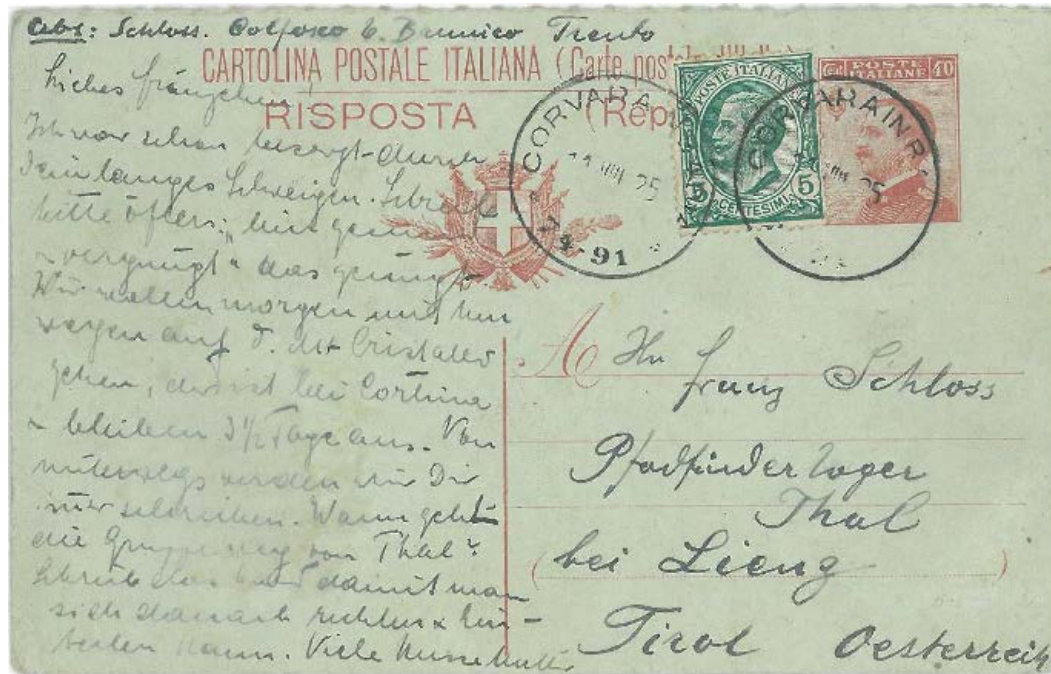 Abs: Schloss. Colfosco b. Brunico Trento
CARTOLINA POSTALE ITALIANA (Carte postale
RISPOSTA (Rep
POSTE ITALIANE 40
POSTE ITALIANE
5 5
CENTESIMI
CORVARA
11 VIII 25
74-91
CORVARA IN
VIII 25
Liebes Fränzchen!
Ich war schon besorgt durch
Dein langes Schweigen. Schreib
bitte öfters: „bin gesund
& vergnügt" das genügt.
Wir wollen morgen
wegen auf d. Mt Cristallo
gehen, das ist bei Cortina
& bleiben 3½ Tage aus. Von
unterwegs werden wir Dir
nur schreiben. Wann geht
die Gruppe weg von Thal?
Schreib das damit man
sich danach richten & ein-
teilen kann. Viele Küsse Mutter
A Hn Franz Schloss
Pfadfinderlager
Thal
bei Lienz
Tirol Oesterreich